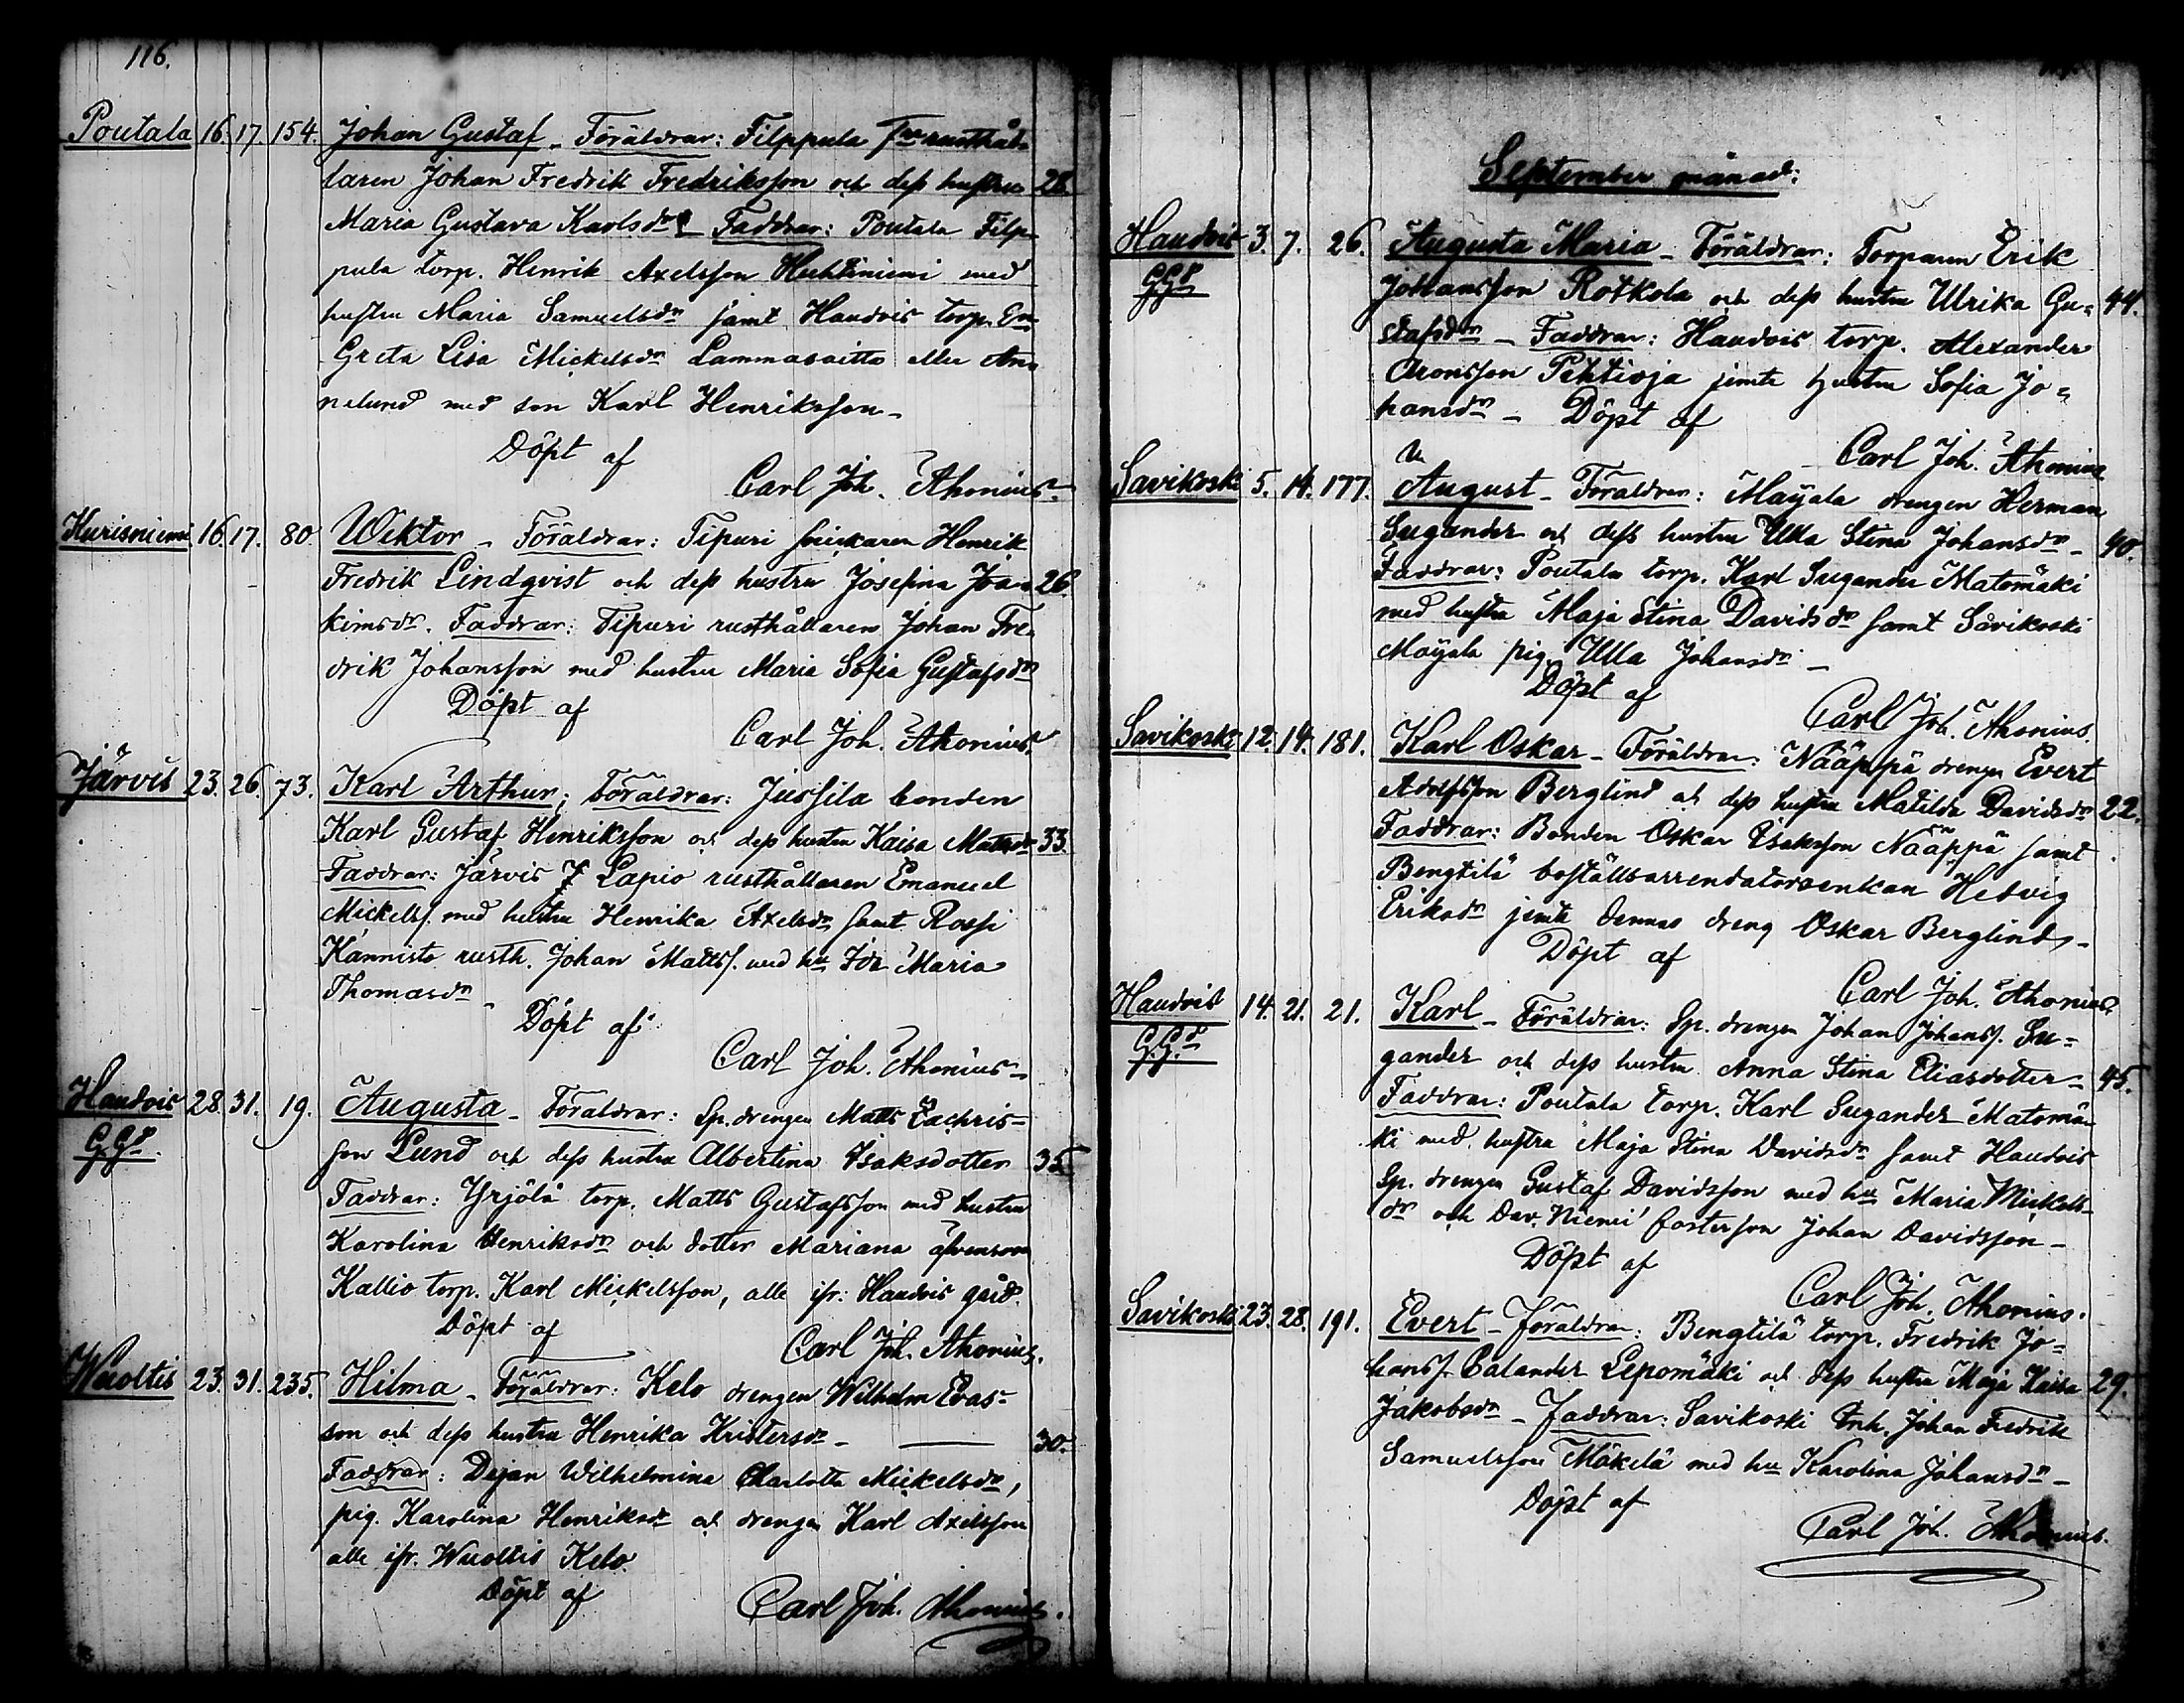 116.
Poutala 16. 17. 154. Johan Gustaf - Föräldrar: Filppula rusthål-
laren Johan Fredrik Fredriksson och dess hustru 28.
Maria Gustava Karlsdr - Faddrar: Poutala Filp-
pula torp. Henrik Axelsson Huhtiniemi med
hustru Maria Samuelsdr samt Haudvis torp. En-
Greta Lisa Mickelsdr Lammasaitta eller An-
nelund med son Karl Henriksson -
Döpt af
Carl Joh. Ahonius.
Kurisniemi 16. 17. 80. Wiktor - Föräldrar: Tipuri snickaren Henrik
Fredrik Lindqvist och dess hustru Josefina Joa- 26.
kimsdr. Faddrar: Tipuri rusthållaren Johan Fre-
drik Johansson med hustru Maria Sofia Gustafsdr
Döpt af
Carl Joh. Ahonius.
Järvis 23. 26. 73. Karl Arthur; Föräldrar: Jussila bonden
Karl Gustaf Henriksson och dess hustru Kaisa Mattsdr 33.
Faddrar: Järvis Lapio rusthållaren Emanuel
Mickelss. med hustru Henrika Axelsdr samt Rossi
Kännistö rusth. Johan Mattss. med hu Ida Maria
Thomasdr -
Döpt af
Carl Joh. Ahonius -
Haudvis 28. 31. 19. Augusta - Föräldrar: Sp. drengen Matts Zachris-
G.Gd. son Lund och dess hustru Albertina Isaksdotter 35.
Faddrar: Yrjölä torp. Matts Gustafsson med hustru
Karolina Henriksdr och dotter Mariana äfvensom
Kallio torp. Karl Mickelsson, alle ifr. Haudvis gård.
Döpt af
Carl Joh. Ahonius.
Wuoltis 23. 31. 235. Hilma - Föräldrar: Kelo drengen Wilhelm Evas-
son och dess hustru Henrika Kristersdr - 30.
Faddrar: Dejan Wilhelmina Charlotta Mickelsdr,
pig. Karolina Henriksdr och drengen Karl Axelsson
alle ifr. Wuoltis Kelo.
Döpt af
Carl Joh. Ahonius.
September månad:
Haudvis 3. 7. 26. Augusta Maria - Föräldrar: Torparen Erik
G.Gd. Johansson Rotkola och dess hustru Ulrika Gu- 44.
stafsdr - Faddrar: Haudvis torp. Alexander
Aronsson Pehtioja jemte hustru Sofia Jo-
hansdr - Döpt af
Carl Joh. Ahonius
Savikoski 5. 14. 177. August - Föräldrar: Mayala drengen Herman
Sugander och dess hustru Ulla Stina Johansdr - 40.
Faddrar: Poutala torp. Karl Sugander Matomäki
med hustru Maja Stina Davidsdr samt Savikoski
Mayala pig. Ulla Johansdr -
Döpt af
Carl Joh. Ahonius.
Savikoski 12. 14. 181. Karl Oskar - Föräldrar: Nääppä drengen Evert
Adolfsson Berglind och dess hustru Matilda Davidsdr 22.
Faddrar: Bonden Oskar Isaksson Nääppä samt
Bengtilä boställsarrendatorsenkan Hedvig
Eriksdr jemte dennas dreng Oskar Berglind -
Döpt af
Carl Joh. Ahonius
Haudvis 14. 21. 21. Karl - Föräldrar: Sp. drengen Johan Johanss. Su-
G.Gd gander och dess hustru Anna Stina Eliasdotter - 45.
Faddrar: Poutala torp. Karl Sugander Matomä-
ki med hustru Maja Stina Davidsdr samt Haudvis
Sp. drengen Gustaf Davidsson med hu Maria Mickels-
dr och Dav. Niemi fosterson Johan Davidsson -
Döpt af
Carl Joh. Ahonius.
Savikoski 23. 28. 191. Evert - Föräldrar: Bengtilä torp. Fredrik Jo-
hanss. Calander Lepomäki och dess hustru Maja Kaisa 29.
Jakobsdr - Faddrar: Savikoski Inh. Johan Fredrik
Samuelsson Mäkelä med hu Karolina Johansdr -
Döpt af
Carl Joh. Ahonius.